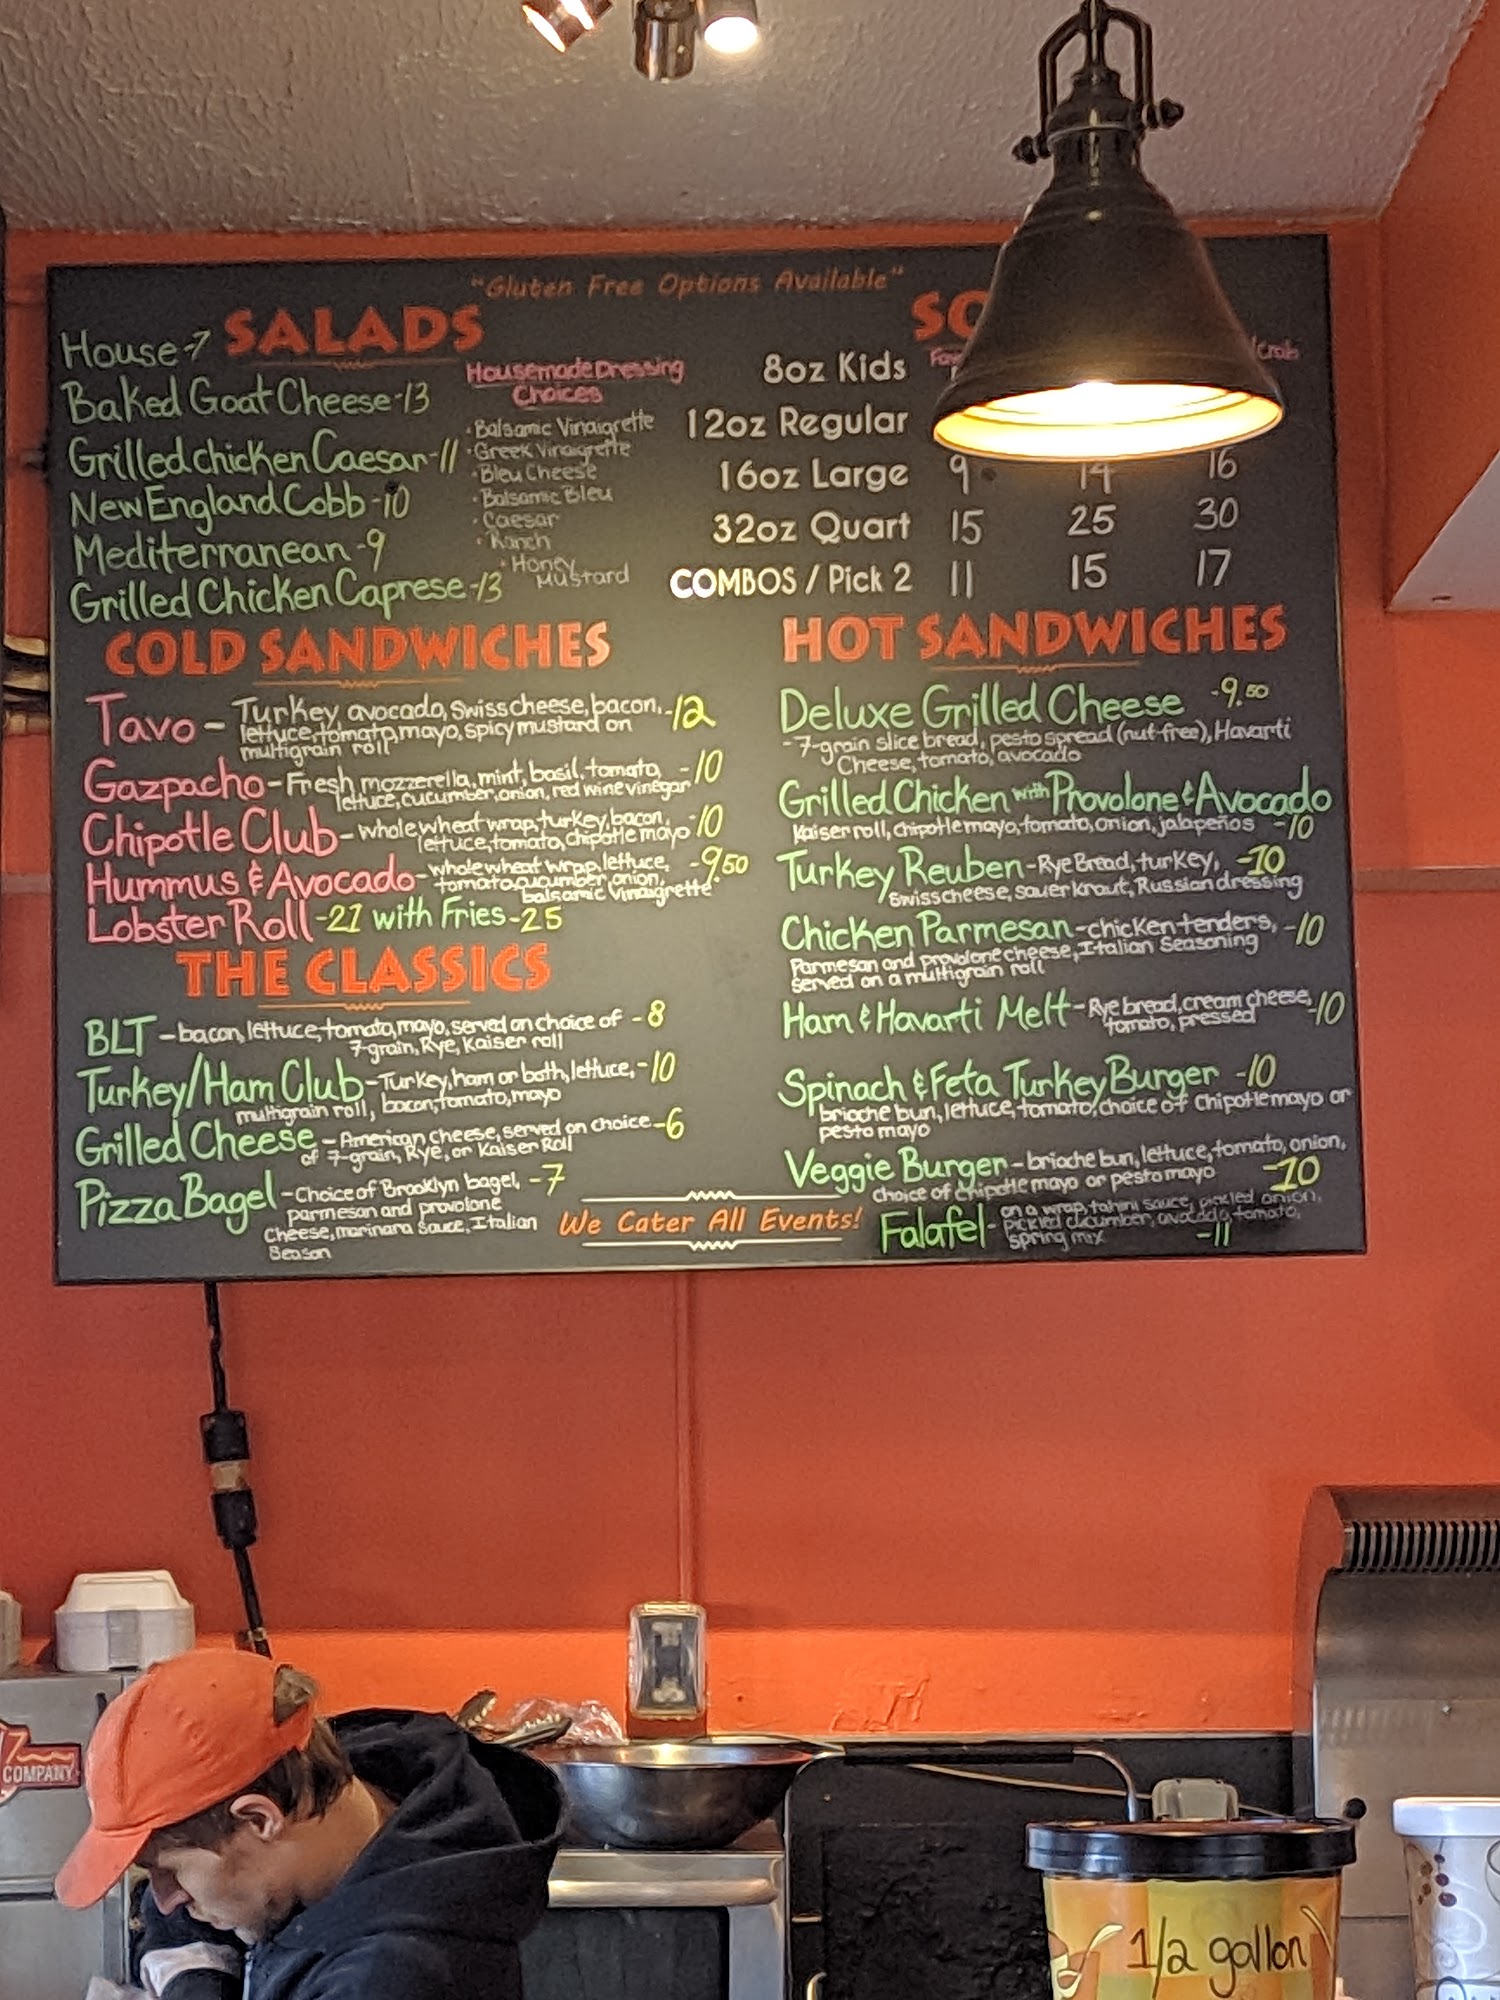 "Gluten Free Options Available"
SALADS
House-7
Baked Goat Cheese-13
Grilled chicken Caesar-11
New England Cobb-10
Mediterranean-9
Grilled Chicken Caprese-13
Housemade Dressing
Choices
• Balsamic Vinaigrette
• Greek Vinaigrette
• Bleu Cheese
• Balsamic Bleu
• Caesar
• Ranch
• Honey
Mustard
8oz Kids
12oz Regular
16oz Large 9 14 16
32oz Quart 15 25 30
COMBOS / Pick 2 11 15 17
COLD SANDWICHES
Tavo - Turkey, avocado, Swiss cheese, bacon, -12
lettuce, tomato, mayo, spicy mustard on
multigrain roll
Gazpacho - Fresh mozzerella, mint, basil, tomato, -10
lettuce, cucumber, onion, red wine vinegar
Chipotle Club - whole wheat wrap, turkey, bacon, -10
lettuce, tomato, chipotle mayo
Hummus & Avocado - whole wheat wrap, lettuce, -9.50
tomato, cucumber, onion,
balsamic vinaigrette
Lobster Roll -21 with Fries -25
THE CLASSICS
BLT - bacon, lettuce, tomato, mayo, served on choice of -8
7-grain, Rye, Kaiser roll
Turkey/Ham Club - Turkey, ham or both, lettuce, -10
multigrain roll, bacon, tomato, mayo
Grilled Cheese - American cheese, served on choice -6
of 7-grain, Rye, or Kaiser Roll
Pizza Bagel - Choice of Brooklyn bagel, -7
parmesan and provolone
Cheese, marinara sauce, Italian
Season
HOT SANDWICHES
Deluxe Grilled Cheese -9.50
- 7-grain slice bread, pesto spread (nut-free), Havarti
Cheese, tomato, avocado
Grilled Chicken with Provolone & Avocado
Kaiser roll, chipotle mayo, tomato, onion, jalapeños -10
Turkey Reuben - Rye Bread, turkey, -10
Swiss cheese, sauerkraut, Russian dressing
Chicken Parmesan - chicken tenders, -10
Parmesan and provolone cheese, Italian Seasoning
served on a multigrain roll
Ham & Havarti Melt - Rye bread, cream cheese, -10
tomato, pressed
Spinach & Feta Turkey Burger -10
brioche bun, lettuce, tomato, choice of Chipotle mayo or
pesto mayo
Veggie Burger - brioche bun, lettuce, tomato, onion,
choice of chipotle mayo or pesto mayo -10
Falafel - on a wrap, tahini sauce, pickled onion,
pickled cucumber, avocado, tomato,
spring mix -11
We Cater All Events!
COMPANY
1/2 gallon